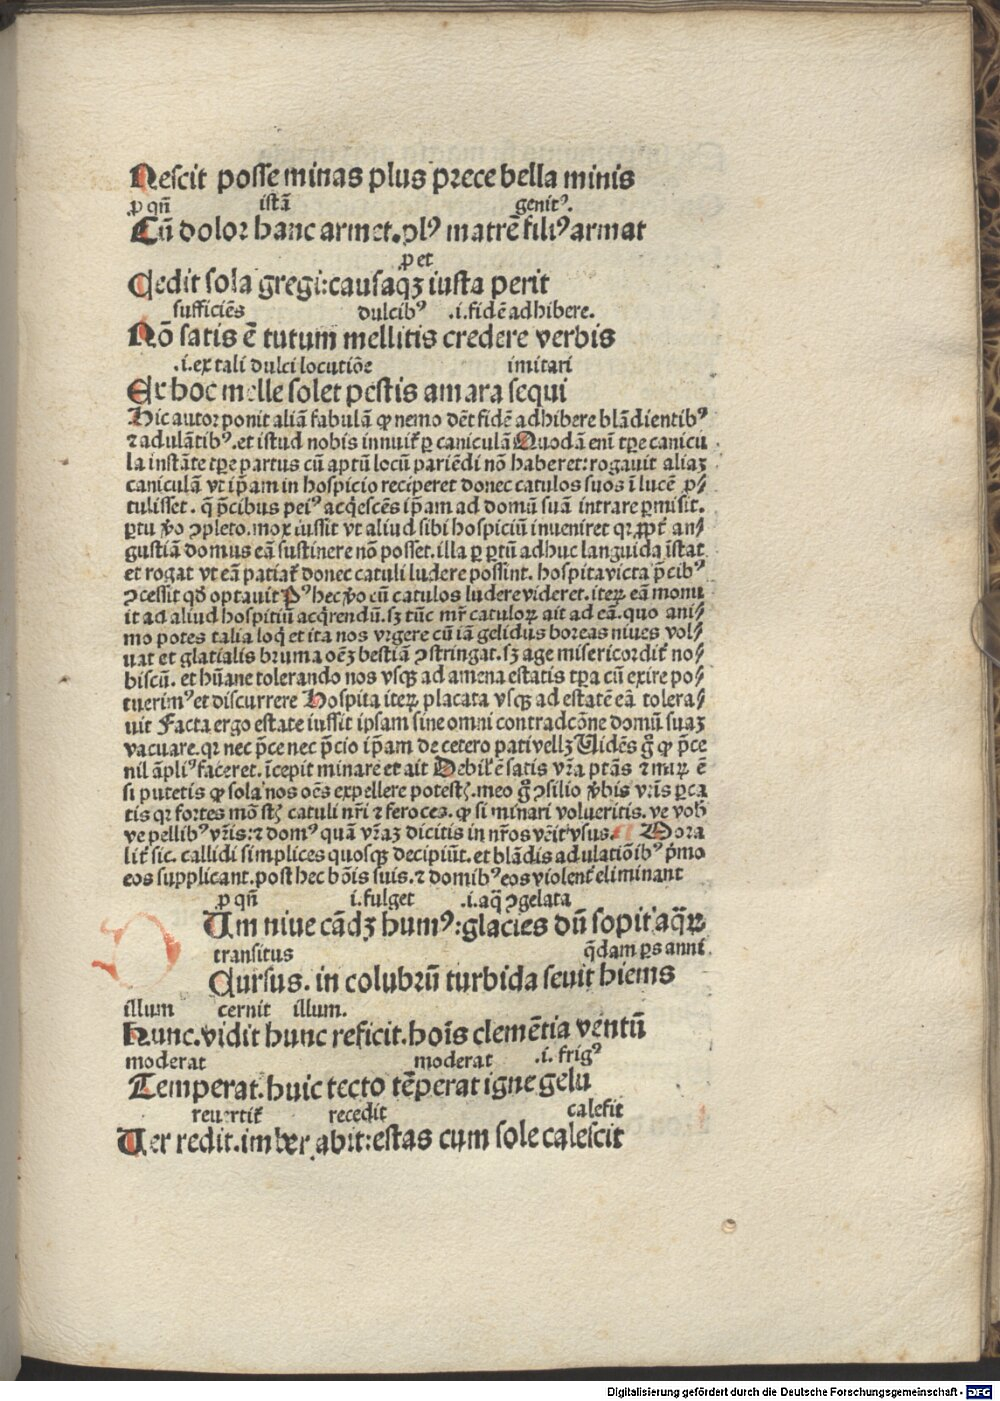 Nescit posse minas plus prece bella minis
ꝓ qñ istã genitꝰ.
Cũ dolor hanc armet. plꝰ matrẽ filiꝰ armat
ꝓ et
Cedit sola gregi: causaqꝫ iusta perit
sufficiẽs dulcibꝰ .i. fidẽ adhibere.
Nõ satis ẽ tutum mellitis credere verbis
.i. ex tali dulci locutiõe imitari
Ex hoc melle solet pestis amara sequi
Hic autor ponit aliã fabulã ꝙ nemo dẽt fidẽ adhibere blãdientibꝰ
⁊ adulãtibꝰ. et istud nobis innuit̃ ꝑ caniculã Quodã eni͂ tp̃e canicu
la instãte tp̃e partus cũ aptũ locũ pariẽdi nõ haberet: rogauit aliaꝫ
caniculã vt ip̃am in hospicio reciperet donec catulos suos ĩ lucẽ p̱⸗
tulisset. q̃ p̃cibus peiꝰ acq̃escẽs ip̃am ad domũ suã intrare ꝑmisit.
ꝑtu ꝟo ꝯpleto. mox iussit vt aliud sibi hospiciũ inueniret qꝛ ꝓpt̃ an⸗
gustiã domus eã sustinere nõ posset. illa ꝑ ꝑtũ adhuc languida ĩstat
et rogat vt eã patiat̃ donec catuli ludere possint. hospita victa p̃cibꝰ
ꝯcessit qď optauit Pꝰ hec ꝟo cũ catulos ludere videret. iteꝝ eã monu
it ad aliud hospitiũ acq̃rendũ. sꝫ tũc mr̃ catuloꝝ ait ad eã. quo ani⸗
mo potes talia loq̃ et ita nos vrgere cũ iã gelidus boreas niues vol⸗
uat et glatialis bruma oẽꝫ bestiã ꝯstringat. sꝫ age misericordit̃ no⸗
biscũ. et hũane tolerando nos vsqꝫ ad amena estatis tp̃a cũ exire po⸗
tuerimꝰ et discurrere Hospita iteꝝ placata vsqꝫ ad estatẽ eã tolera⸗
uit Facta ergo estate iussit ipsam sine omni contradcõne domũ suaꝫ
vacuare. qꝛ nec p̃ce nec p̃cio ip̃am de cetero pati vellꝫ Uidẽs g̃ ꝙ p̃ce
nil ãpliꝰ faceret. ĩcepit minare et ait Debil' ẽ satis vr̃a ptãs ⁊ miꝝ ẽ
si putetis ꝙ sola nos oẽs expellere potestꝭ. meo g̃ ꝯsilio ꝟbis vr̃is ꝑca
tis qꝛ fortes mõ stꝭ catuli nr̃i ⁊ feroces. ꝙ si minari volueritis. ve vob̃
ve pellibꝰ vr̃is: ⁊ domꝰ quã vr̃aꝫ dicitis in nr̃os vẽit vsus. ¶ Mora
lit̃ sic. callidi simplices quosqꝫ decipiũt. et blãdis adulatiõibꝰ p̃mo
eos supplicant. post hec bõis suis. ⁊ domibꝰ eos violent̃ eliminant
ꝓ qñ i. fulget .i. aq̃ ꝯgelata
Um niue cãdꝫ humꝰ: glacies dũ sopit aq̃ꝝ
transitus q̃dam ꝑs anni
Cursus. in colubrũ turbida seuit hiems
illum cernit illum.
Hunc. vidit hunc reficit. hoĩs clemẽtia ventũ
moderat moderat .i. frigꝰ
Temperat. huic tecto tẽperat igne gelu
reuertit̃ recedit calefit
Uer redit. imber abit: estas cum sole calescit
Digitalisierung gefördert durch die Deutsche Forschungsgemeinschaft - DFG